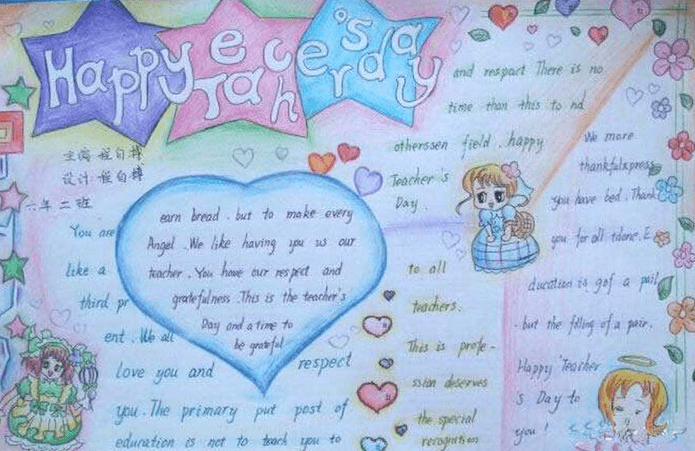 Happy Teacher's day
主编:程自樟
设计:程自樟
六年二班
You are
like a
third pr
ent. We all
love you and respect
you. The primary put post of
education is not to teach you to
earn bread. but to make every
Angel. We like having you us our
teacher. You have our respect and
gratefulness. This is the teacher's
Day and a time to
be grateful
and respact There is no
time than this to nd
otherssen field. happy
Teacher's
Day.
to all
teachers.
This is profe-
ssion deserves
the special
recognition
We more
thankfulxpress
you have bed. Thank
you for all tdone. E
ducation is gof a pail
.but the filling of a pair.
Happy Teacher
's Day to
you!